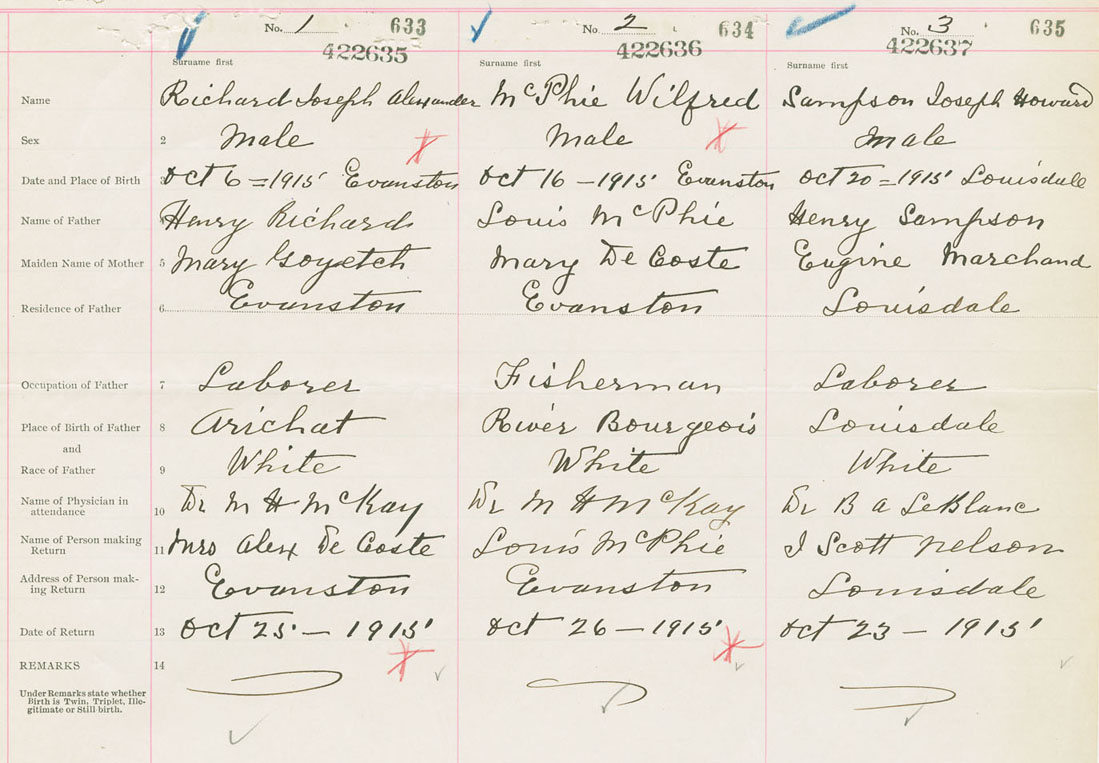 No. 1 633 No. 2 634 No. 3 635
422635 422636 422637
Surname first Surname first Surname first
Name Richard Joseph Alexander McPhie Wilfred Sampson Joseph Howard
Sex 2 Male Male Male
Date and Place of Birth 3 Oct 6 = 1915 Evanston Oct 16 - 1915 Evanston Oct 20 = 1915 Louisdale
Name of Father 4 Henry Richard Louis McPhie Henry Sampson
Maiden Name of Mother 5 Mary Goyetch Mary DeCoste Eugine Marchand
Residence of Father 6 Evanston Evanston Louisdale
Occupation of Father 7 Laborer Fisherman Laborer
Place of Birth of Father 8 Arichat River Bourgeois Louisdale
and
Race of Father 9 White White White
Name of Physician in
attendance 10 Dr M H McKay Dr M H McKay Dr B A LeBlanc
Name of Person making
Return 11 Mrs Alex DeCoste Louis McPhie J Scott Nelson
Address of Person mak-
ing Return 12 Evanston Evanston Louisdale
Date of Return 13 Oct 25 - 1915 Oct 26 - 1915 Oct 23 - 1915
REMARKS 14
Under Remarks state whether
Birth is Twin, Triplet, Ille-
gitimate or Still-birth.